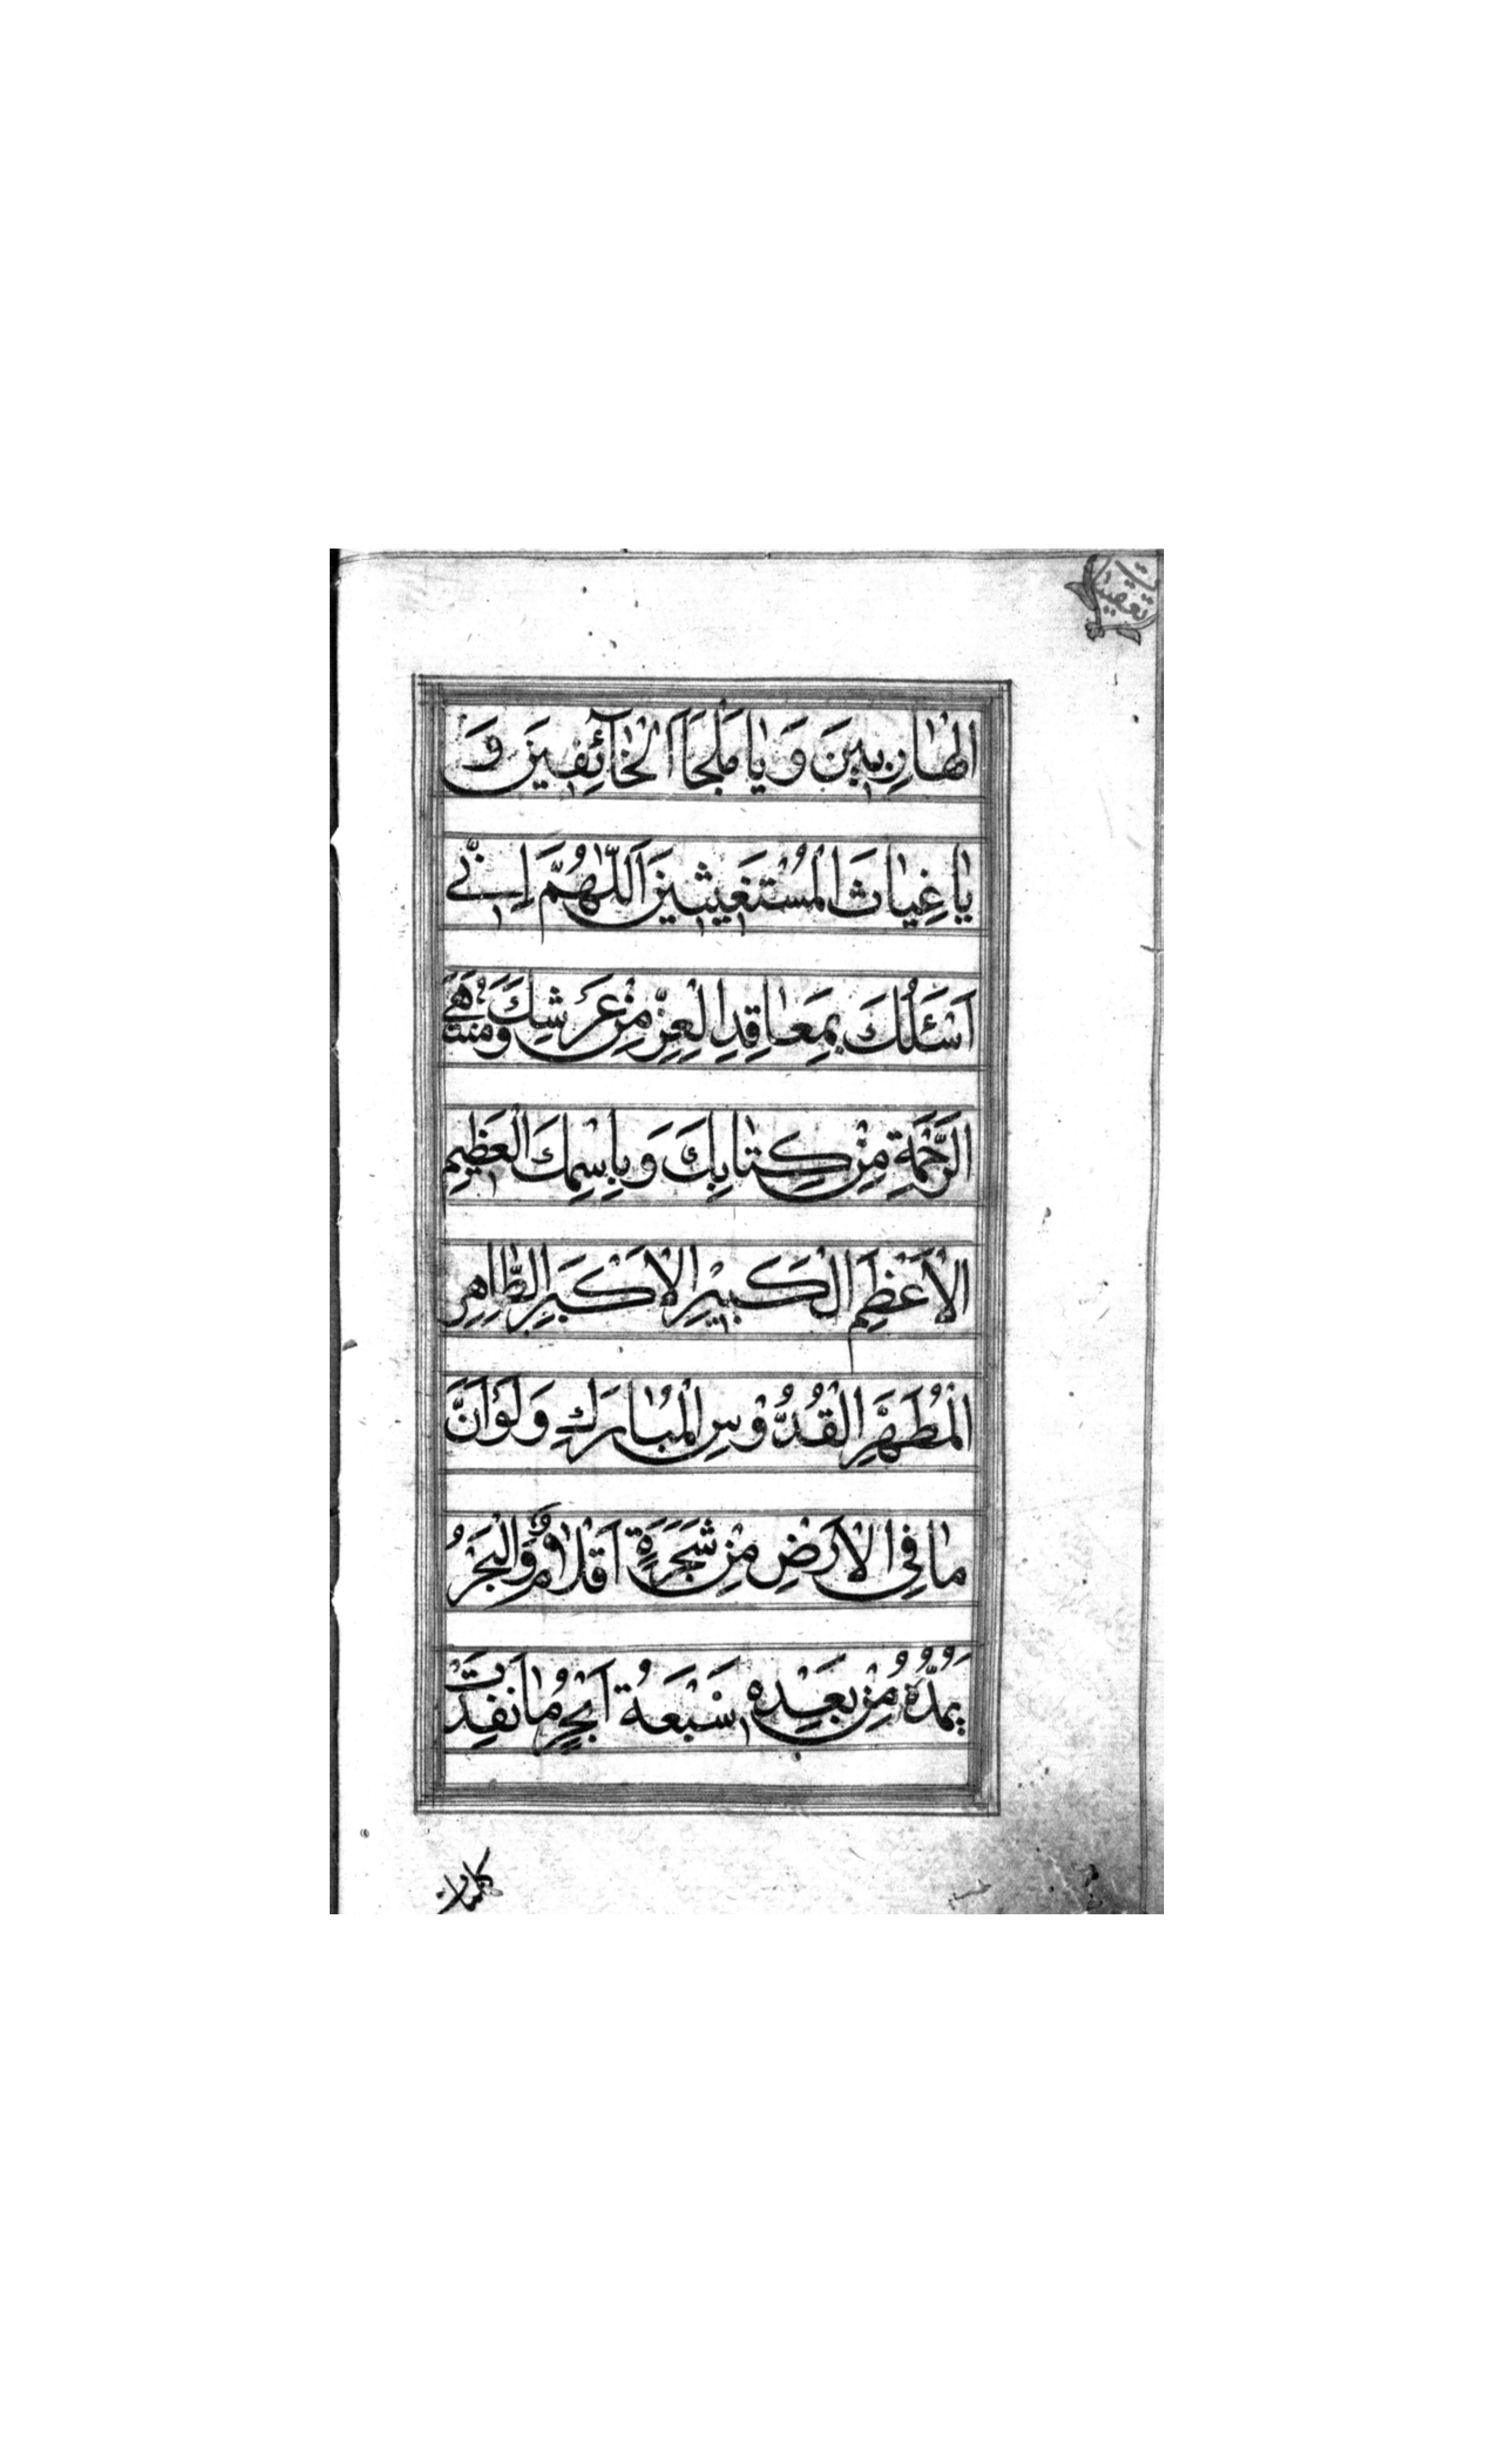 تعقيبات
الهٰارِبينَ وَ يٰا مَلْجَأَ الْخٰآئِفينَ وَ
يٰا غِيٰاثَ الْمُسْتَغيثينَ اَللّٰهُمَّ اِنّي
اَسْئَلُكَ بِمَعٰاقِدِ الْعِزِّ مِنْ عَرْشِكَ وَمُنْتَهَي
الرَّحْمَةِ مِنْ كِتٰابِكَ وَ بِاِسْمِكَ الْعَظيمِ
الْاَعْظَمِ الْكَبيرِ الْاَكْبَرِ الطّٰاهِرِ
الْمُطَهَّرِ الْقُدُّوْسِ الْمُبٰارَكِ وَ لَوْ اَنَّ
مٰا فِي الْاَرْضِ مِنْ شَجَرَةٍ اَقْلٰامٌ وَالْبَحْرُ
يَمُدُّهُ مِنْ بَعْدِهِ سَبْعَةُ اَبْحُرٍ مٰا نَفِدَتْ
كلمات